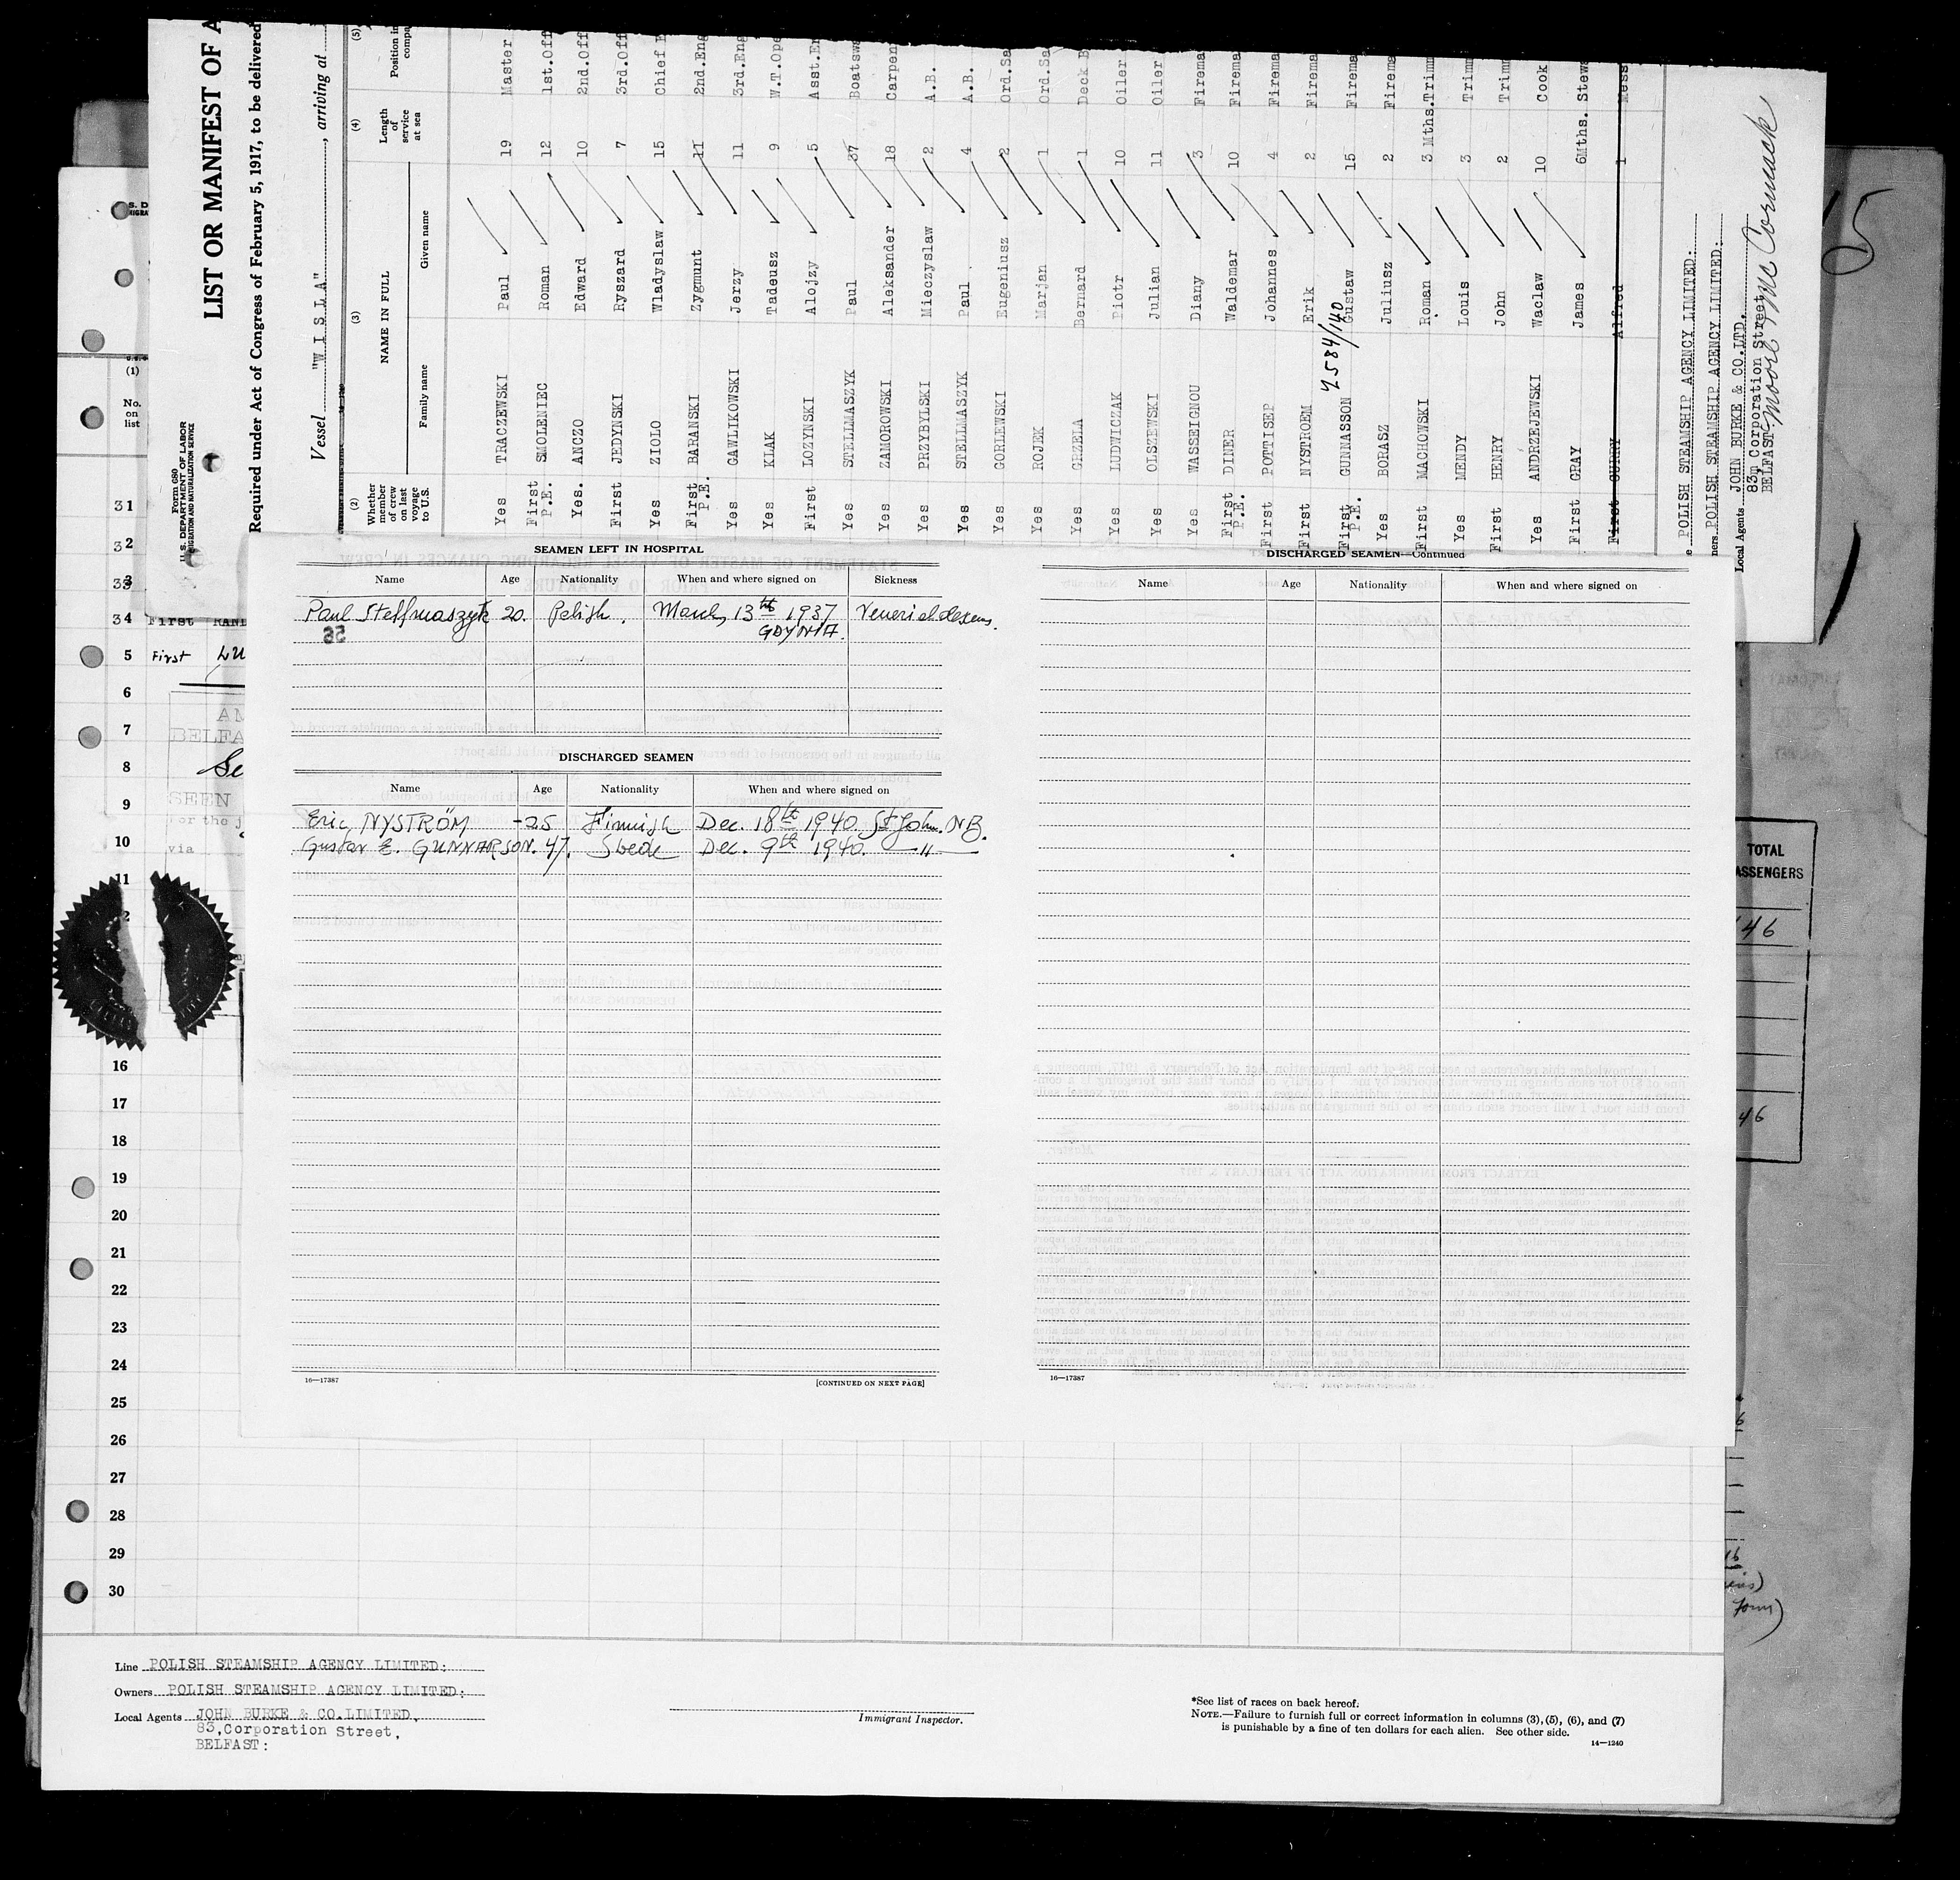 LIST OR MANIFEST OF A
Required under Act of Congress of February 5, 1917, to be delivered
Vessel "WISLA", arriving at
Form 680
U. S. DEPARTMENT OF LABOR
IMMIGRATION AND NATURALIZATION SERVICE
(2) (3) (4) (5)
Whether member of crew on last voyage to U.S. NAME IN FULL Length of service at sea Position in
Family name Given name
Yes TRACZEWSKI Paul 19 Master
First P.E. SMOLENIEC Roman 12 1st.Off
Yes. ANCZO Edward 10 2nd.Off
First JEDYNSKI Ryszard 7 3rd.Off
Yes ZIOLO Wladyslaw 15 Chief E
First P.E. BARANSKI Zygmunt 11 2nd.Eng
Yes GAWLIKOWSKI Jerzy 11 3rd.Eng
Yes KLAK Tadeusz 9 W.T.Ope
First LOZYNSKI Alojzy 5 Asst.En
Yes STELLMASZYK Paul 37 Boatswa
Yes ZAMOROWSKI Aleksander 18 Carpen
Yes PRZYBYLSKI Mieczyslaw 2 A.B.
Yes STELLMASZYK Paul 4 A.B.
Yes GORLEWSKI Eugeniusz 2 Ord.Sa
Yes ROJEK Marjan 1 Ord.Sa
Yes GRZELA Bernard 1 Deck B
Yes LUDWICZAK Piotr 10 Oiler
Yes OLSZEWSKI Julian 11 Oiler
Yes WASSEIGNOU Diany 3 Firema
First P.E. DINER Waldemar 10 Firema
First POTTISEP Johannes 4 Firema
First NYSTROEM Erik 2 Firema
First P.E. GUNNASSON Gustaw 15 Firema
Yes BORASZ Julliusz 2 Firema
First MACHOWSKI Roman 3 Mths. Trimm
Yes MENDY Louis 3 Trimm
First HENRY John 2 Trimm
Yes ANDRZEJEWSKI Waclaw 10 Cook
First GRAY James 6Mths. Stewa
First CURRY Alfred 1 Mess
POLISH STEAMSHIP AGENCY LIMITED:
ners. POLISH STEAMSHIP AGENCY LIMITED:
Local Agents JOHN BURKE & CO.LTD,
83, Corporation Street,
BELFAST:
Moore & McCormack
(1)
No. on list
31
32
33
34 First
5 First
6
7
8
9
10
11
SEEN
via
SEAMEN LEFT IN HOSPITAL
Name Age Nationality When and where signed on Sickness
Paul Stellmaszyk 20. Polish. March, 13th 1937
GDYNIA.
DISCHARGED SEAMEN
Name Age Nationality When and where signed on
Eric NYSTRÖM -25 Finnish Dec. 18th 1940. St John. N.B.
Gustav E. GUNNARSON. 47. Svede Dec. 9th 1940. — " —
16—17387 [CONTINUED ON NEXT PAGE]
DISCHARGED SEAMEN—Continued
Name Age Nationality When and where signed on
16—17387
TOTAL
46
46
16
17
18
19
20
21
22
23
24
25
26
27
28
29
30
Line POLISH STEAMSHIP AGENCY LIMITED:
Owners POLISH STEAMSHIP AGENCY LIMITED:
Local Agents JOHN BURKE & CO.LIMITED,
83,Corporation Street,
BELFAST:
Immigrant Inspector.
*See list of races on back hereof.
NOTE.—Failure to furnish full or correct information in columns (3), (5), (6), and (7)
is punishable by a fine of ten dollars for each alien. See other side.
14—1240